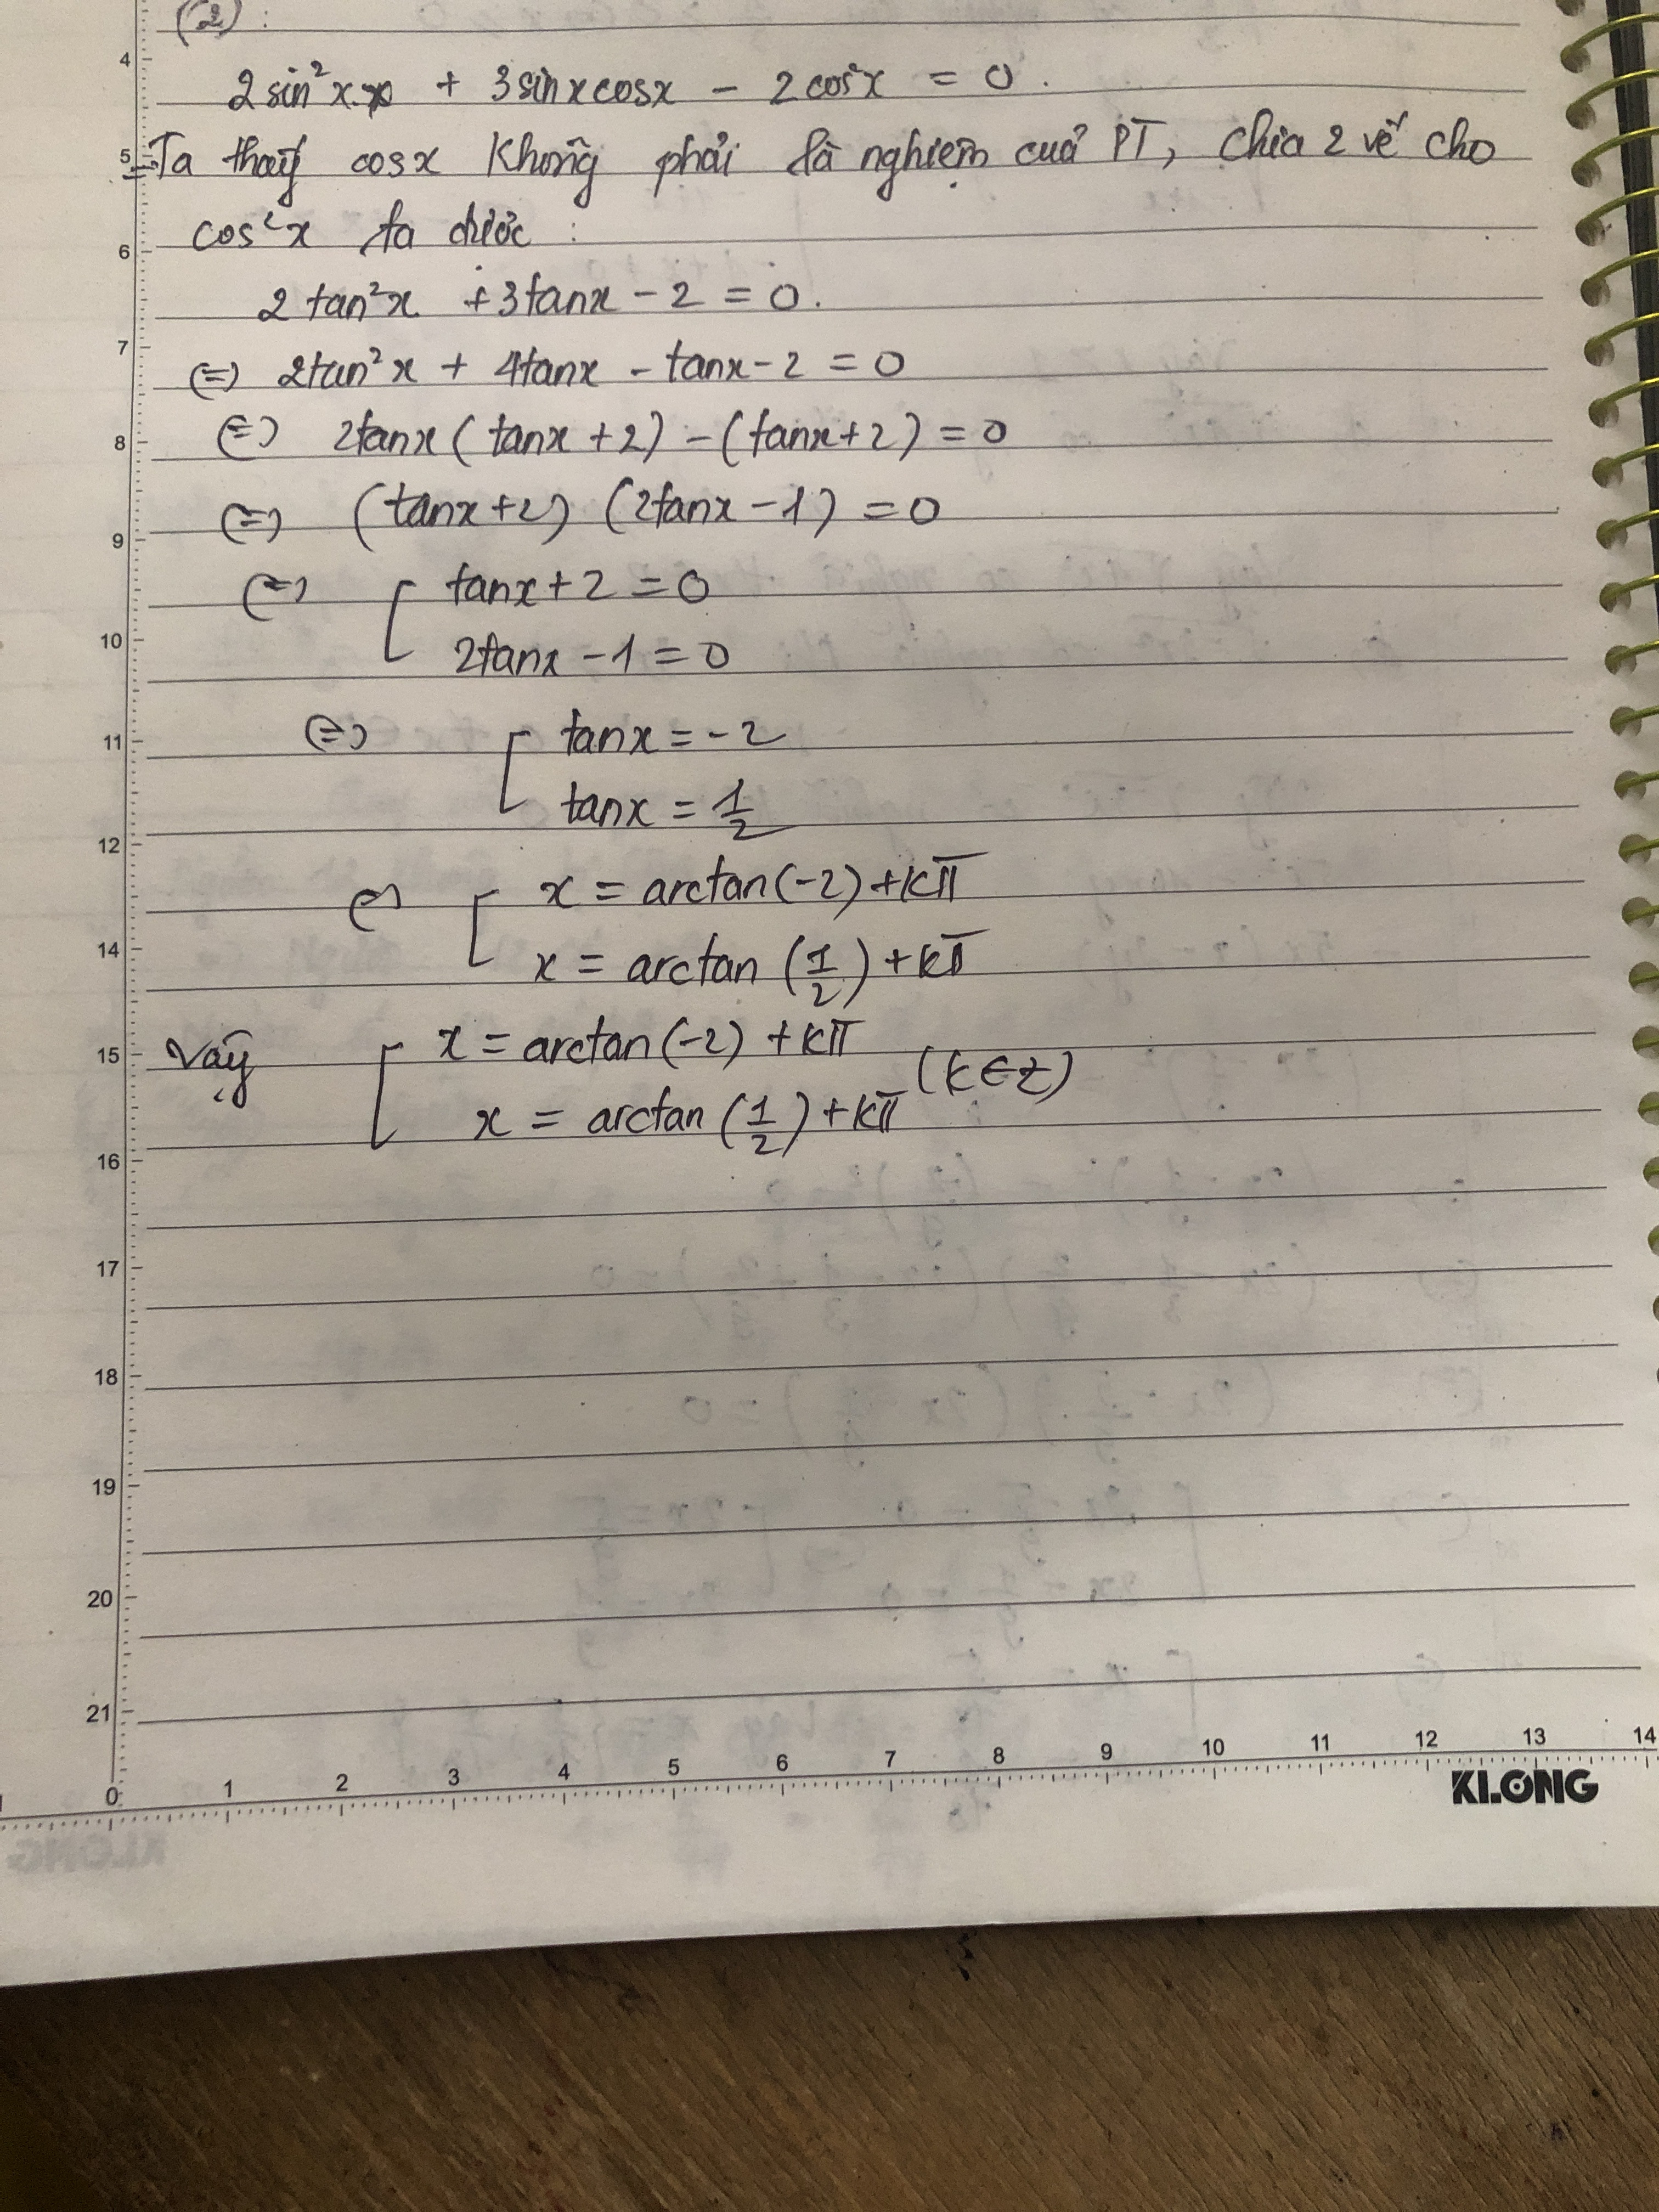 (2) :
2sin²x + 3sinxcosx - 2cos²x = 0.
Ta thấy cosx không phải là nghiệm của PT, chia 2 vế cho
cos²x ta được :
2tan²x + 3tanx - 2 = 0.
(=) 2tan²x + 4tanx - tanx - 2 = 0
(=) 2tanx (tanx + 2) - (tanx + 2) = 0
(=) (tanx + 2) (2tanx - 1) = 0
(=) [ tanx + 2 = 0
2tanx - 1 = 0
(=) [ tanx = -2
tanx = 1/2
(=) [ x = arctan(-2) + kπ
x = arctan (1/2) + kπ
Vậy [ x = arctan(-2) + kπ
x = arctan (1/2) + kπ (k ∈ Z)
4
5
6
7
8
9
10
11
12
14
15
16
17
18
19
20
21
0 1 2 3 4 5 6 7 8 9 10 11 12 13 14
KLONG